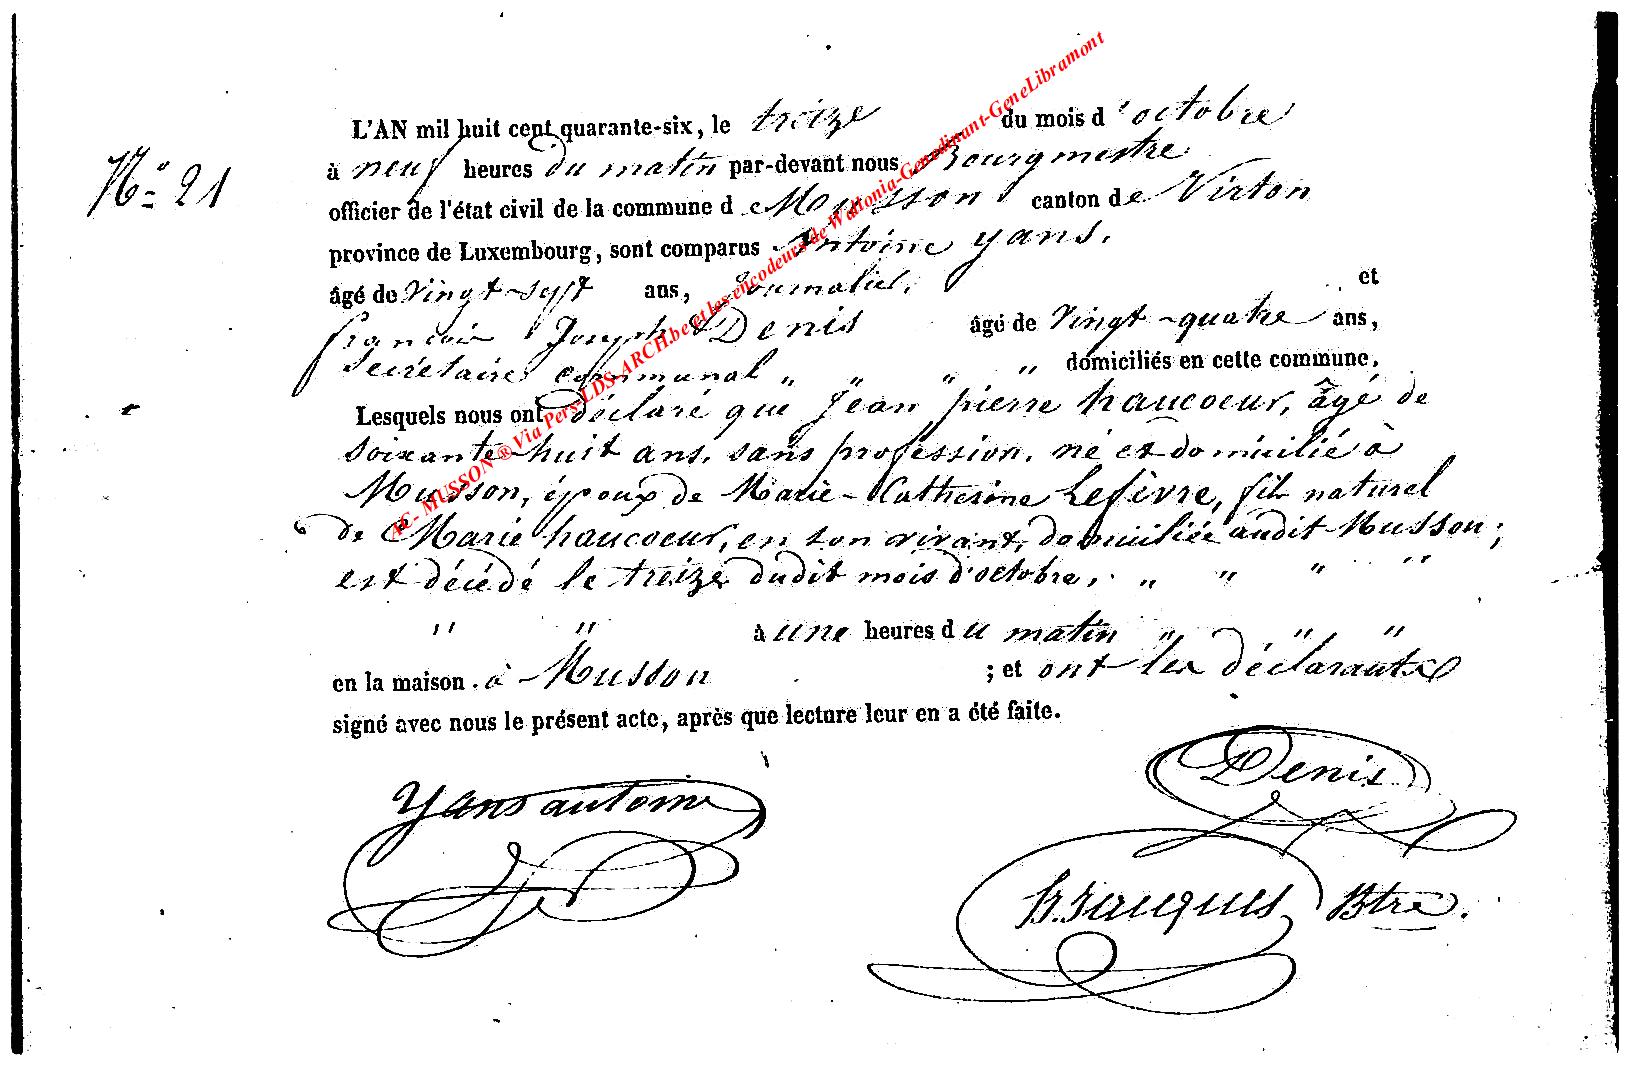 N.° 21
L'AN mil huit cent quarante-six, le treize du mois d'octobre
à neuf heures du matin par-devant nous Bourgmestre
officier de l'état civil de la commune de Musson canton de Virton
province de Luxembourg, sont comparus Antoine yans,
âgé de vingt-sept ans, Journalier, et
françois Joseph Denis âgé de vingt-quatre ans,
secrétaire communal " " " " domiciliés en cette commune,
Lesquels nous ont déclaré que Jean pierre haucoeur, âgé de
soixante huit ans, sans profession, né et domicilié à
Musson, époux de Marie-Catherine Lefèvre, fils naturel
de Marie haucoeur, en son vivant, domiciliée audit Musson;
est décédé le treize dudit mois d'octobre, " " " "
" " à une heures du matin " " "
en la maison à Musson ; et ont les déclarants
signé avec nous le présent acte, après que lecture leur en a été faite.
Yans antoine
Denis
Jacques Btre.
AC- MUSSON ® Via Pers-LDS-ARCH.be et les encodeurs de Wallonia-Genedinant-GeneLibramont